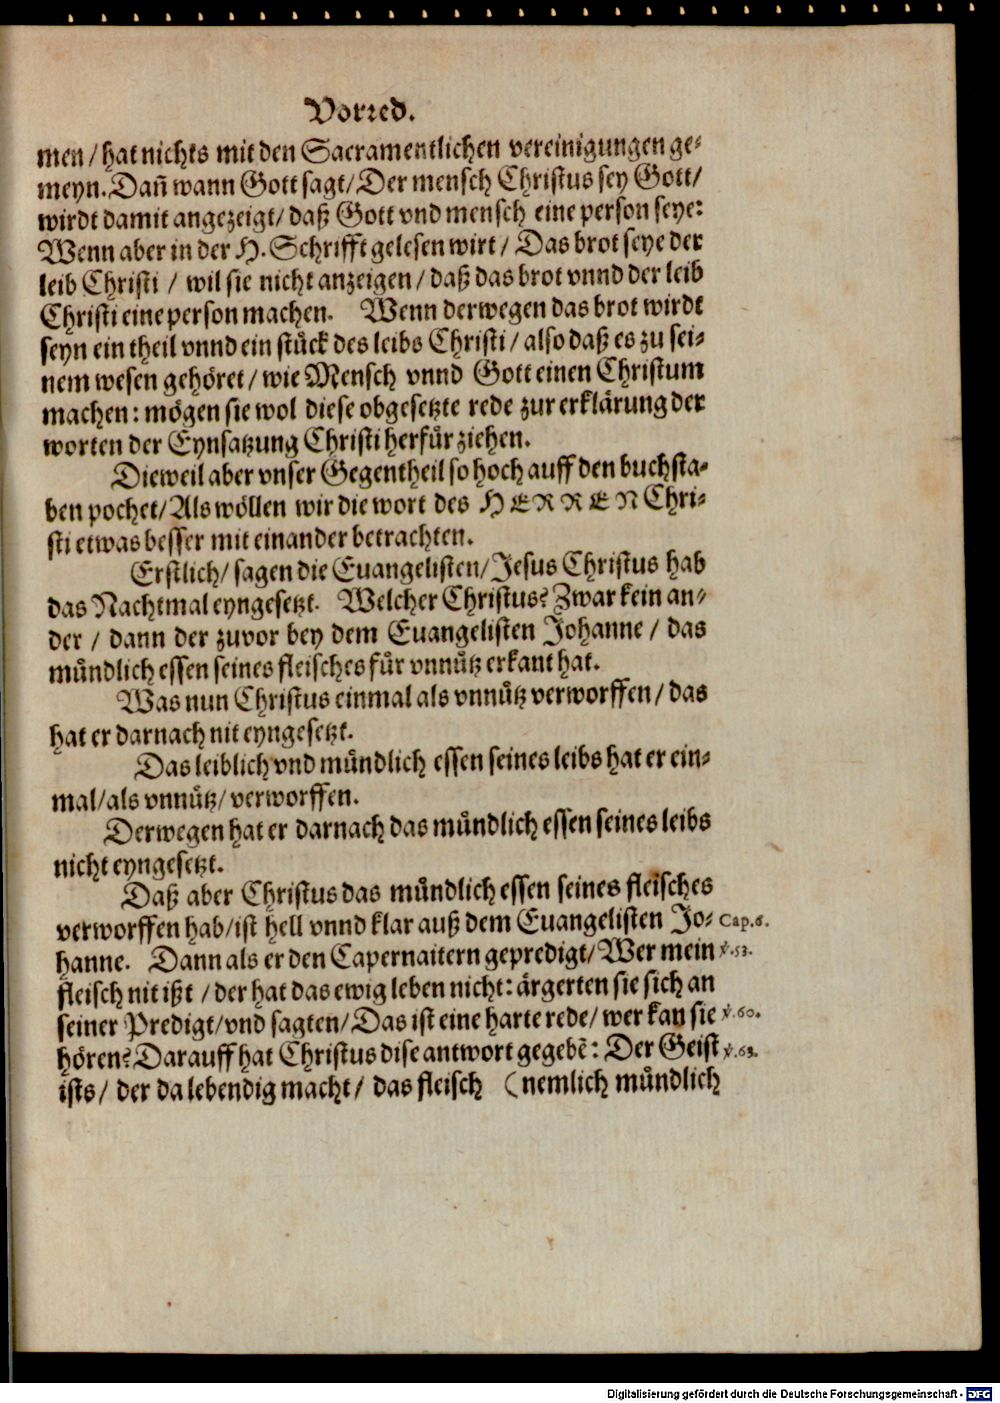 Vorred.
men / hat nichts mit den Sacramentlichen vereinigungen ge-
meyn. Dañ wann Gott sagt / Der mensch Christus sey Gott /
wirdt damit angezeigt / daß Gott vnd mensch eine person seye:
Wenn aber in der H. Schrifft gelesen wirt / Das brot seye der
leib Christi / wil sie nicht anzeigen / daß das brot vnnd der leib
Christi eine person machen. Wenn derwegen das brot wirdt
seyn ein theil vnnd ein stuͤck des leibs Christi / also daß es zu sei-
nem wesen gehoͤret / wie Mensch vnnd Gott einen Christum
machen: moͤgen sie wol diese obgesetzte rede zur erklaͤrung der
worten der Eynsatzung Christi herfuͤr ziehen.
Dieweil aber vnser Gegentheil so hoch auff den buchsta-
ben pochet / Als woͤllen wir die wort des HERREN Chri-
sti etwas besser mit einander betrachten.
Erstlich / sagen die Euangelisten / Jesus Christus hab
das Nachtmal eyngesetzt. Welcher Christus? Zwar kein an-
der / dann der zuvor bey dem Euangelisten Johanne / das
muͤndlich essen seines fleisches fuͤr vnnuͤtz erkant hat.
Was nun Christus einmal als vnnuͤtz verworffen / das
hat er darnach nit eyngesetzt.
Das leiblich vnd muͤndlich essen seines leibs hat er ein-
mal / als vnnuͤtz / verworffen.
Derwegen hat er darnach das muͤndlich essen seines leibs
nicht eyngesetzt.
Daß aber Christus das muͤndlich essen seines fleisches
verworffen hab / ist hell vnnd klar auß dem Euangelisten Jo- Cap. 6.
hanne. Dann als er den Capernaitern gepredigt / Wer mein ℣. 53.
fleisch nit ißt / der hat das ewig leben nicht: aͤrgerten sie sich an
seiner Predigt / vnd sagten / Das ist eine harte rede / wer kan sie ℣. 60.
hoͤren? Darauff hat Christus dise antwort gegebẽ: Der Geist ℣. 63.
ists / der da lebendig macht / das fleisch (nemlich muͤndlich
Digitalisierung gefördert durch die Deutsche Forschungsgemeinschaft - DFG